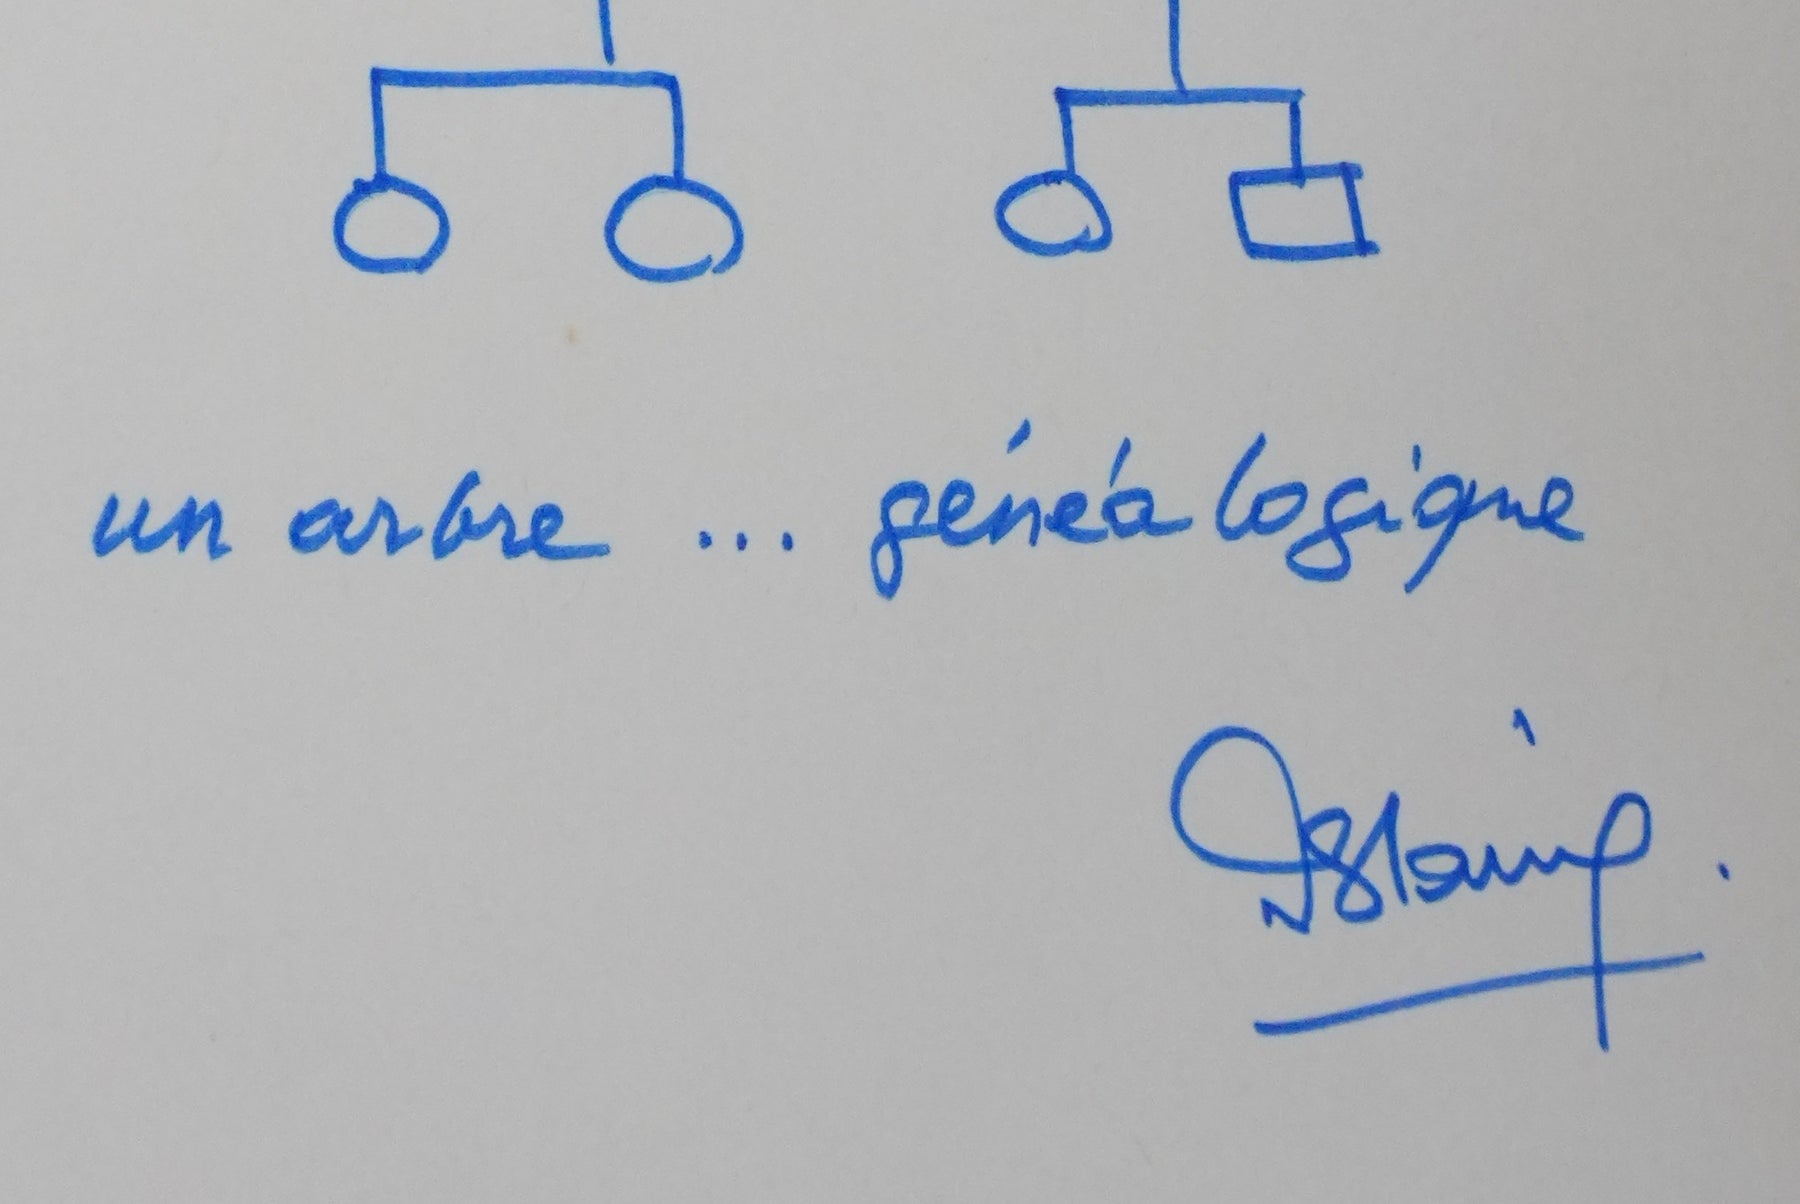 un arbre ... généalogique